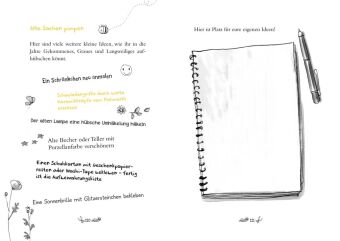 Alte Sachen pimpen
Hier sind viele weitere kleine Ideen, wie ihr in die
Jahre Gekommenes, Graues und Langweiliges auf-
hübschen könnt.
Ein Schreibkissen neu anmalen
Schubladengriffe durch
ersetzen
Der alten Lampe eine hübsche Umhäkelung häkeln
Alte Becher oder Teller mit
Porzellanfarbe verschönern
Einen Schuhkarton mit Geschenkpapier-
resten oder Washi-Tape bekleben – fertig
ist die Aufbewahrungskiste
Eine Sonnenbrille mit Glitzersteinchen bekleben
Hier ist Platz für eure eigenen Ideen!